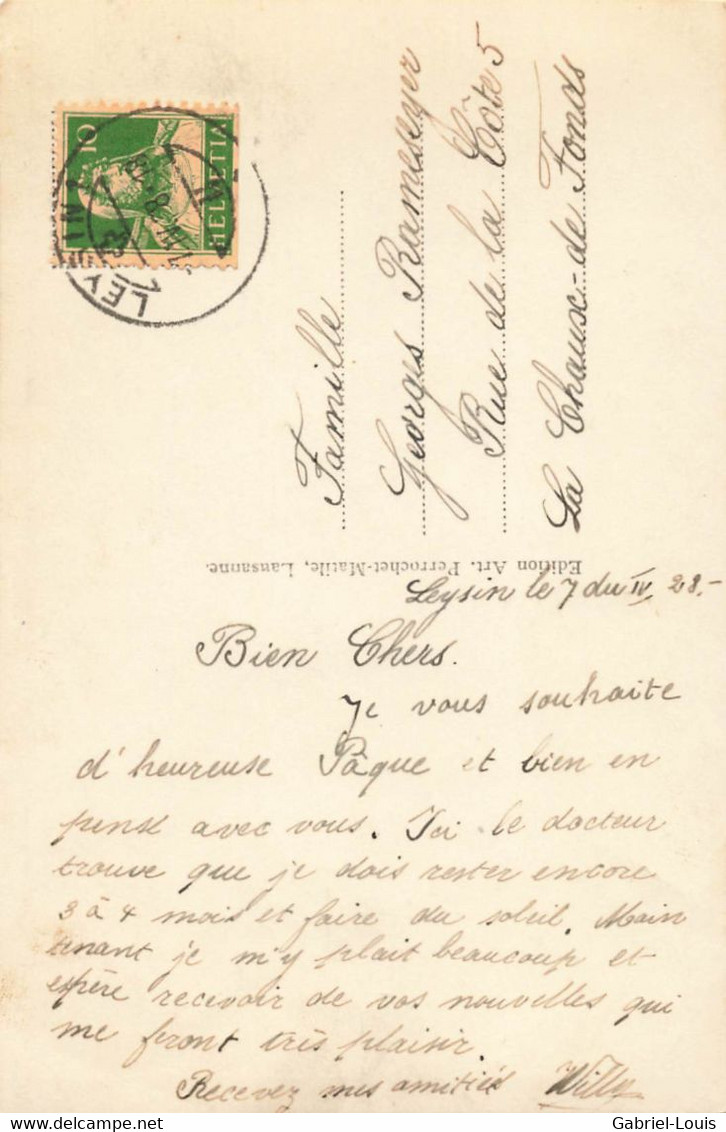 10
HELVETIA
LEYSIN 1
Famille
Georges Ramseyer
Rue de la Côte 5
La Chaux-de-Fonds
Edition Art. Perrochet-Matile, Lausanne.
Leysin le 7 du IV 28.-
Bien Chers.
Je vous souhaite
d'heureuse Pâque et bien en
pense avec vous. Ici le docteur
trouve que je dois rester encore
3 à 4 mois et faire du soleil. Main
tenant je m'y plait beaucoup et
espère recevoir de vos nouvelles qui
me front très plaisir.
Recevez mes amitiés Willy
Gabriel-Louis